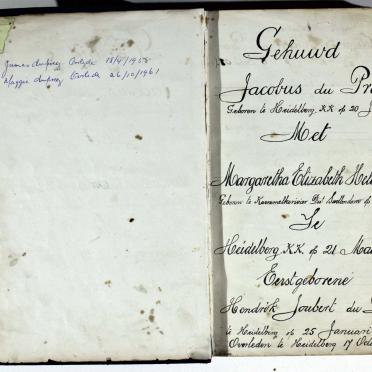 James dupreez Overlede 18/4/1958
Maggie dupreez Overlede 26/10/1961
Gehuwd
Jacobus du Pr
Geboren te Heidelberg, K.K. op 20 J
Met
Margaretha Elizabeth Het
Geboren te Karnmelksrivier Dist Swellendam op
Te
Heidelberg K.K. op 21 Ma
Eerstgeborene
Hendrik Joubert du
te Heidelberg op 25 Januari
Overleden te Heidelberg 17 Oct